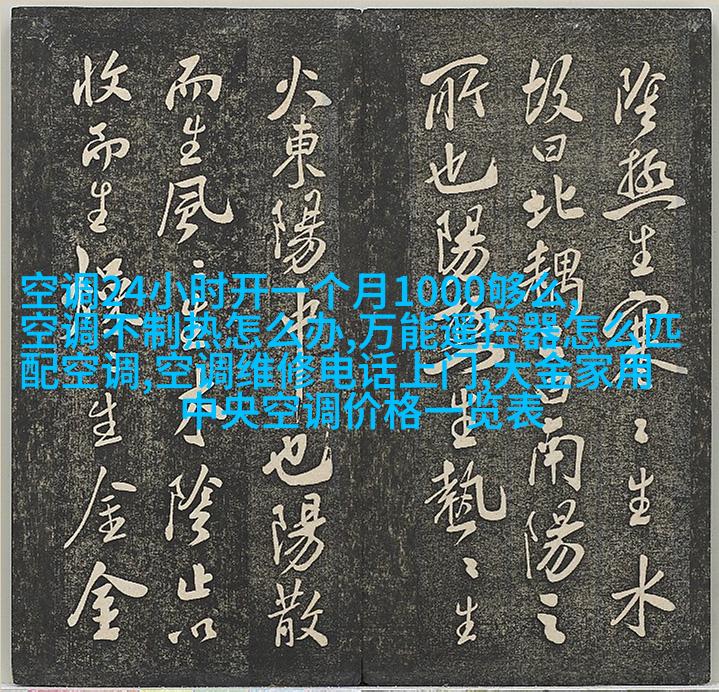 空调24小时开一个月1000够么,
空调不制热怎么办,万能遥控器怎么匹
配空调,空调维修电话上门,大金家用
中央空调价格一览表
陰極生寒〻生水
故曰北耦曰南陽之
所也陽極生熱〻生
火東陽中也陽散
而生風〻生木陰止以
收而生燥〻生金金